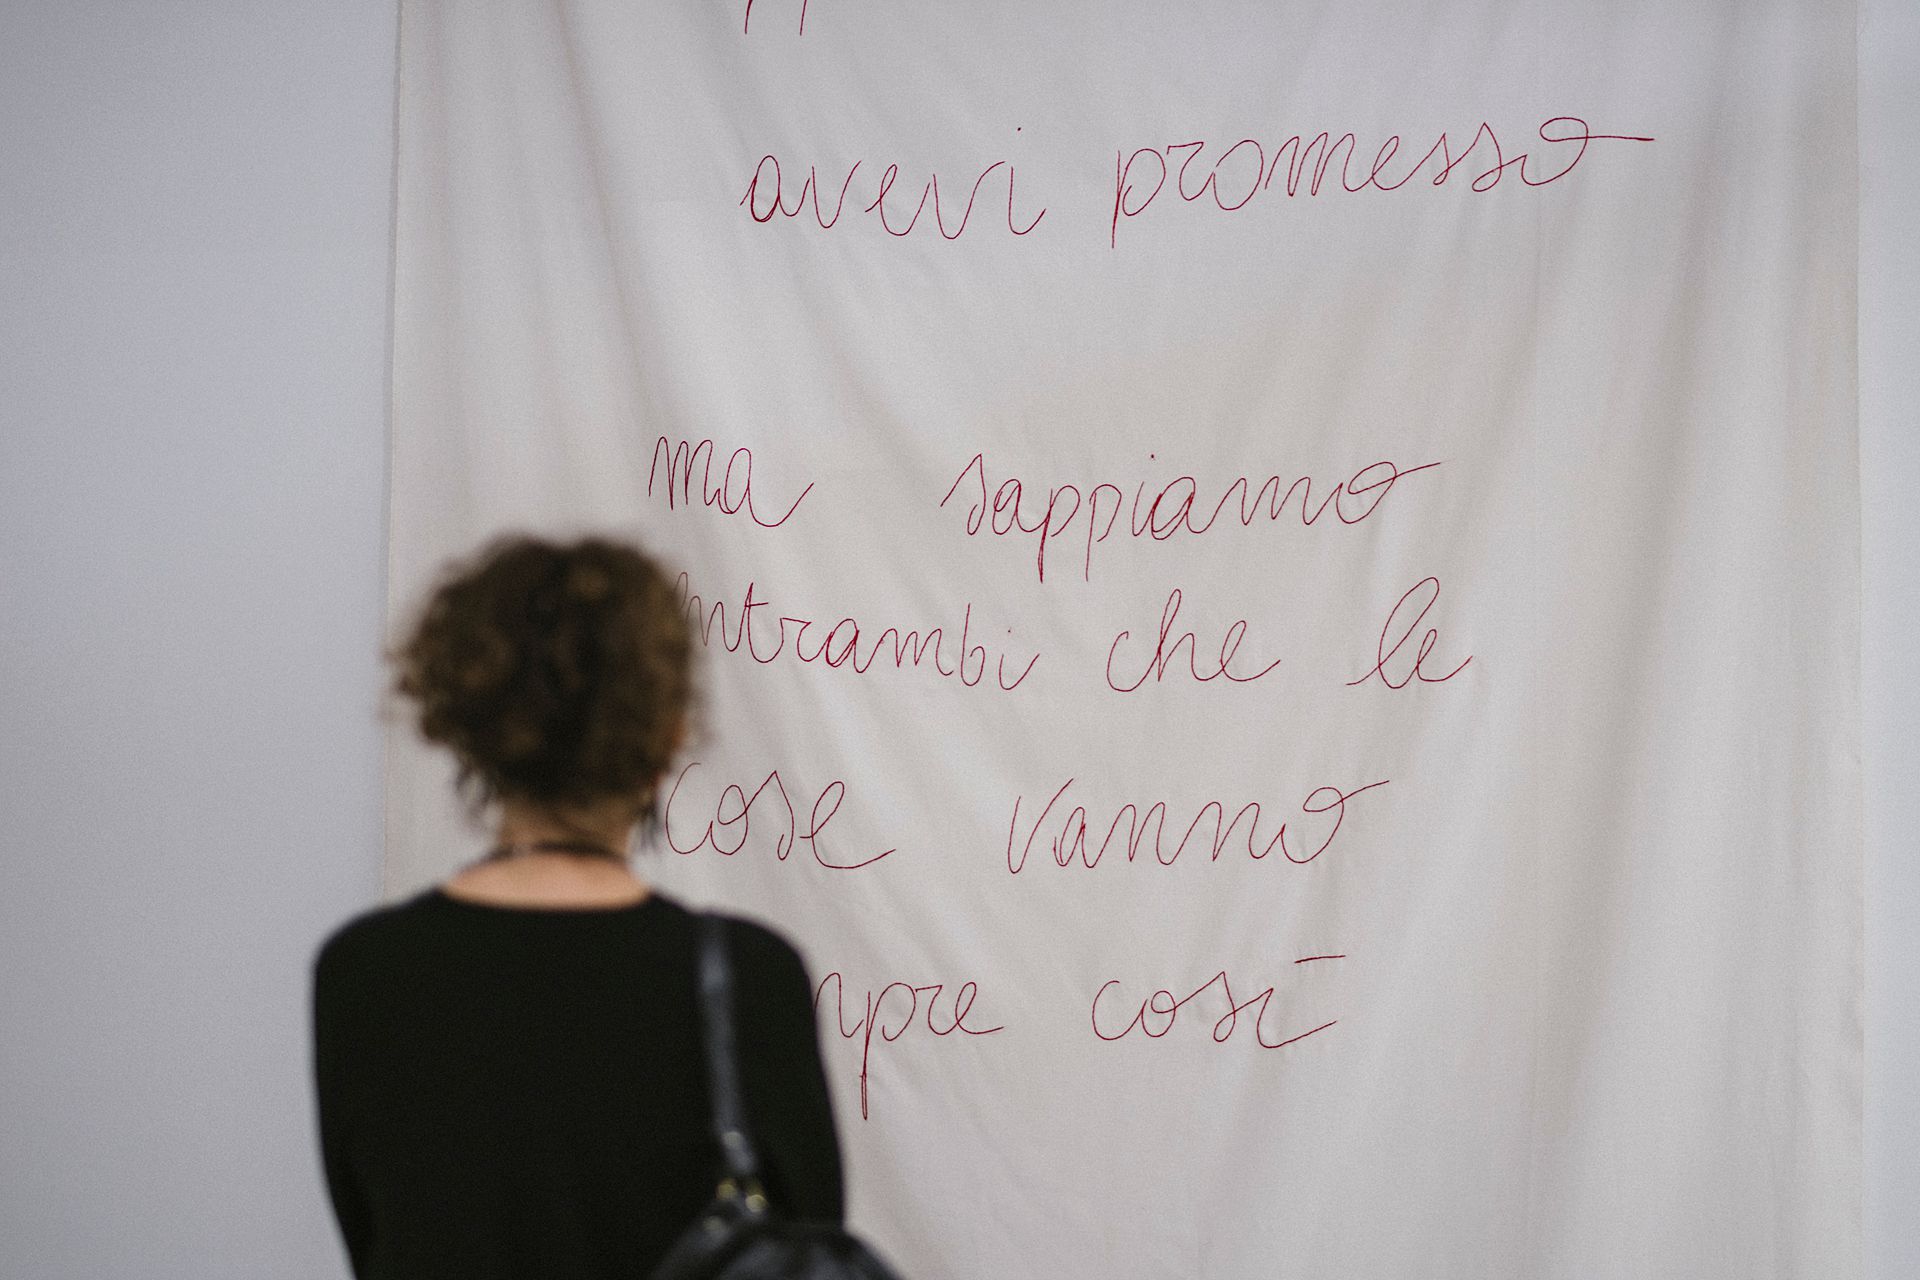 avevi promesso
ma sappiamo
entrambi che le
cose vanno
così